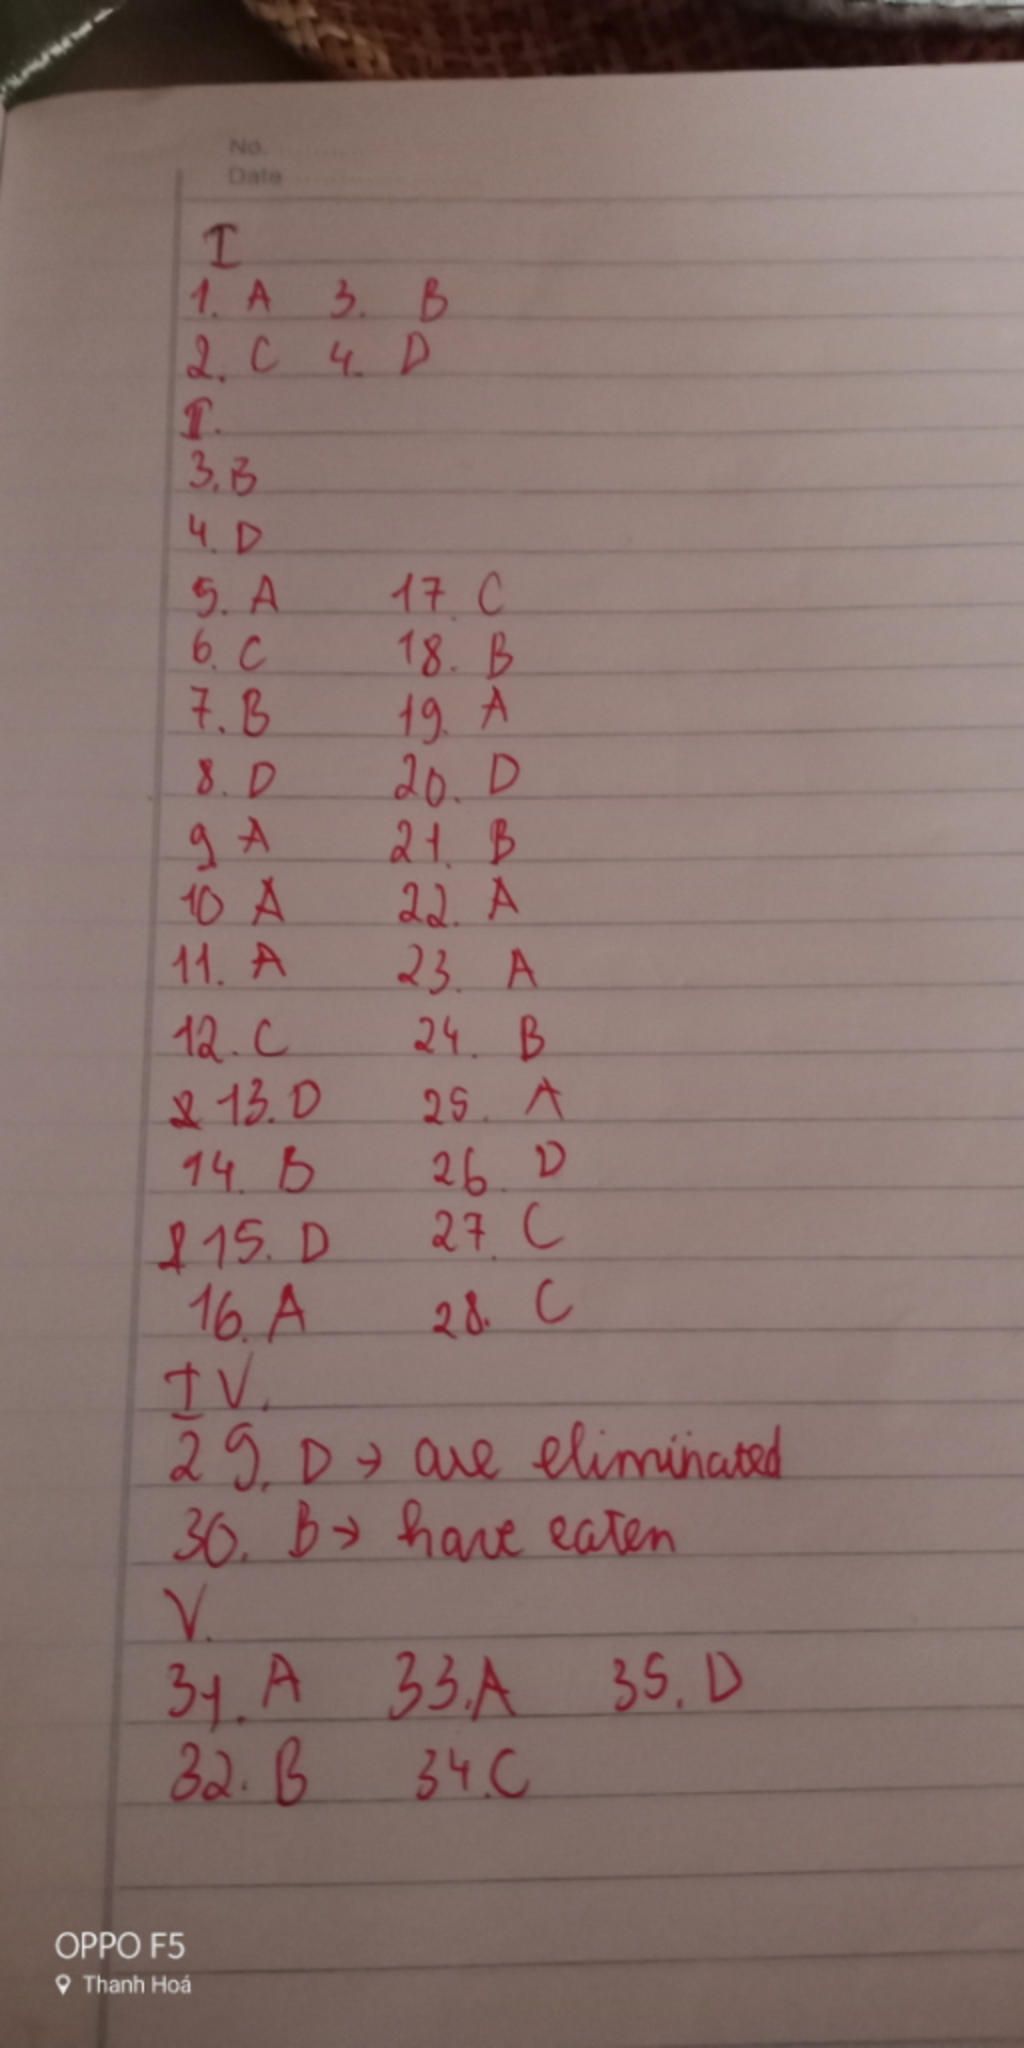 No.
Date
I
1. A 3. B
2. C 4. D
I.
3. B
4. D
5. A 17. C
6. C 18. B
7. B 19. A
8. D 20. D
9 A 21. B
10 A 22. A
11. A 23. A
12. C 24. B
13. D 25. A
14. B 26. D
15. D 27. C
16. A 28. C
IV.
29. D → are eliminated
30. B → have eaten
V.
31. A 33. A 35. D
32. B 34. C
OPPO F5
Thanh Hoá